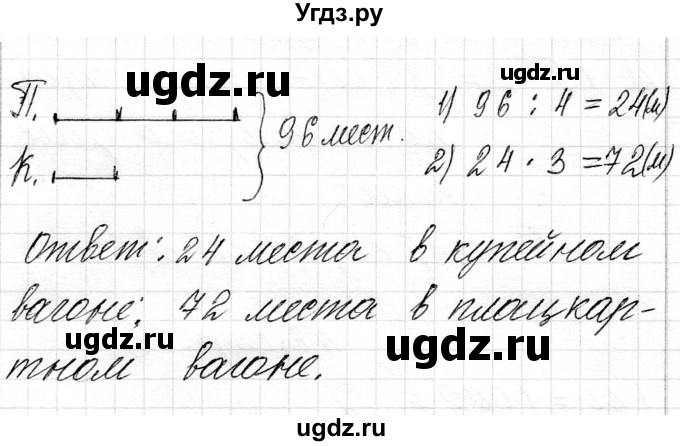 Угдз.ру
П.
К.
96 мест.
1) 96 : 4 = 24(м)
2) 24 · 3 = 72(м)
Ответ: 24 места в купейном
вагоне; 72 места в плацкар-
тном вагоне.
ugdz.ru
ugdz.ru
ugdz.ru
ugdz.ru
ugdz.ru
ugdz.ru